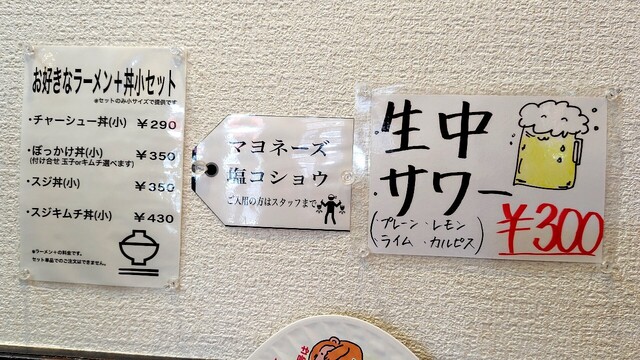 お好きなラーメン+丼小セット
※セットのみ小サイズで提供です
・チャーシュー丼(小) ¥290
・ぼっかけ丼(小) ¥350
(付け合せ 玉子orキムチ選べます)
・スジ丼(小) ¥350
・スジキムチ丼(小) ¥430
※ラーメン+の料金です。
セット単品でのご注文はできません。
マヨネーズ
塩コショウ
ご入用の方はスタッフまで
・生中
・サワー
(プレーン・レモン
ライム・カルピス)
¥300